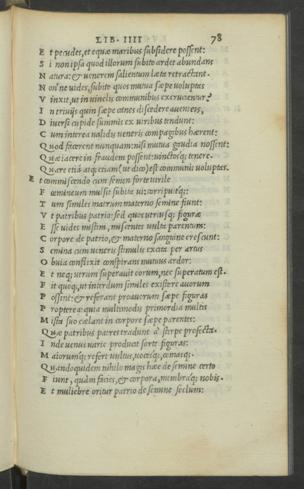 LIB. IIII 78
E t pecudes, et equæ maribus subsidere possent:
S i non ipsa quod illorum subito ardet abundans
N atura: & venerem salientum læta retractant.
N onne vides, subito quos mutua sæpe voluptes
V inxit, ut in vinclis communibus excrucientur?
I n triviis quin sæpe canes discedere aventes,
D iversi cupide summis ex viribus tendunt:
C um interea validis veneris compagibus hærent:
Q uod facerent nunquam: nisi mutua gaudia nossent:
Q uæ iacere in fraudem possent: vinctosq; tenere.
Q uare etiā atq; etiam (ut dico) est communis voluptes.
E t commiscendo cum semen forte virile
F œmineum mulsit subita vi: corripuitq;:
T um similes matrum materno semine fiunt:
V t patribus patrio: sed quos utriusq; figuræ
E sse vides mistim, miscentes vulta parentum:
C orpore de patrio, & materno sanguine crescunt:
S emina cum veneris stimulis excita per artus
O bvia conflixit conspirans mutuus ardor:
E t neq; utrum superavit eorum, nec superatum est.
F it quoq; ut interdum similes existere avorum
P ossint: & referant proavorum sæpe figuras
P roptereā quia multimodis primordia multis
M ista suo cælant in corpore sæpe parentes:
Q uæ patribus patres tradunt a stirpe profecta.
I nde venus vario producit sorte figuras:
M aiorumq; refert vultus, vocesq; comasq;:
Q uandoquidem nihilo magis hæc de semine certo
F iunt, quàm facies, & corpora, membraq; nobis.
E t muliebre oritur patrio de semine seclum: